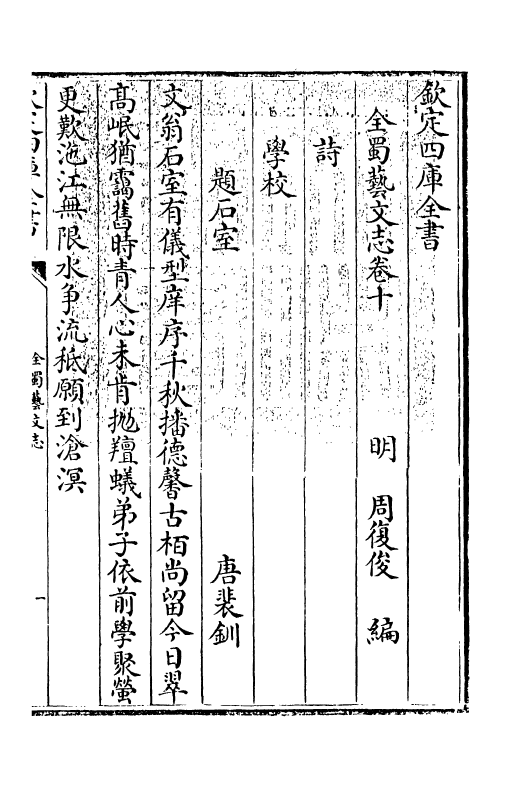 欽定四庫全書
全蜀藝文志卷十
明 周復俊 編
詩
學校
題石室 唐裴鉶
文翁石室有儀型庠序千秋播德馨古栢尚留今日翠
髙岷猶靄舊時青人心未肯抛羶蟻弟子依前學聚螢
更歎沲江無限水争流秪願到滄溟
全蜀藝文志
一